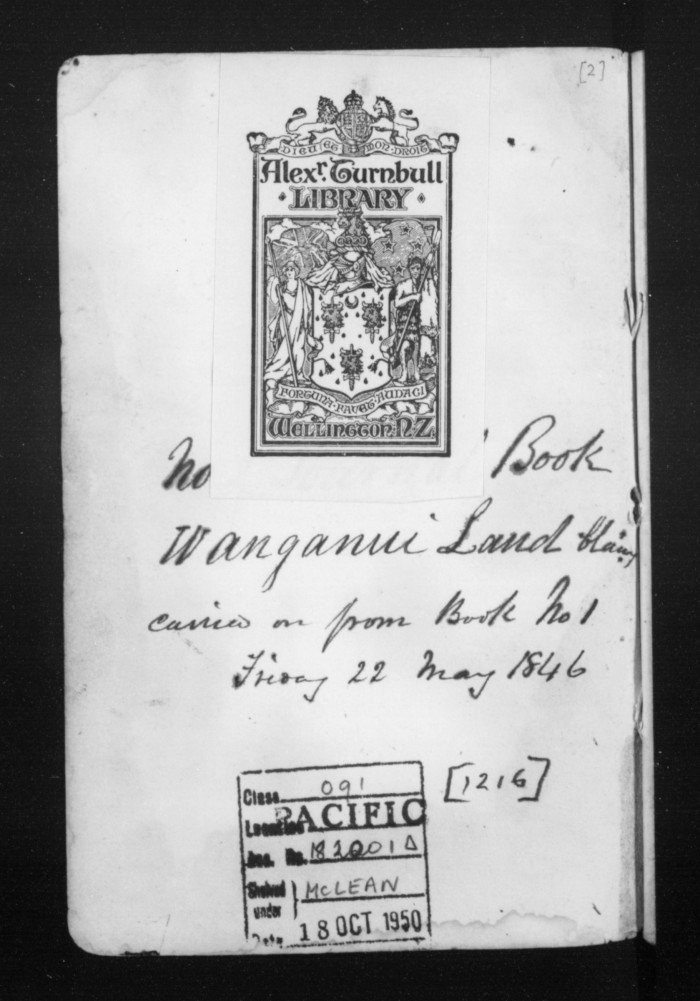 [2]
DIEU ET MON DROIT
Alexr. Turnbull
LIBRARY
FORTUNA FAVET AUDACI
WELLINGTON. N.Z.
No Book
Wanganui Land
carried on from Book No 1
Friday 22 May 1846
[1216]
Class 091
Location PACIFIC
Acc. No.
Shelved under McLEAN
Date 18 OCT 1950